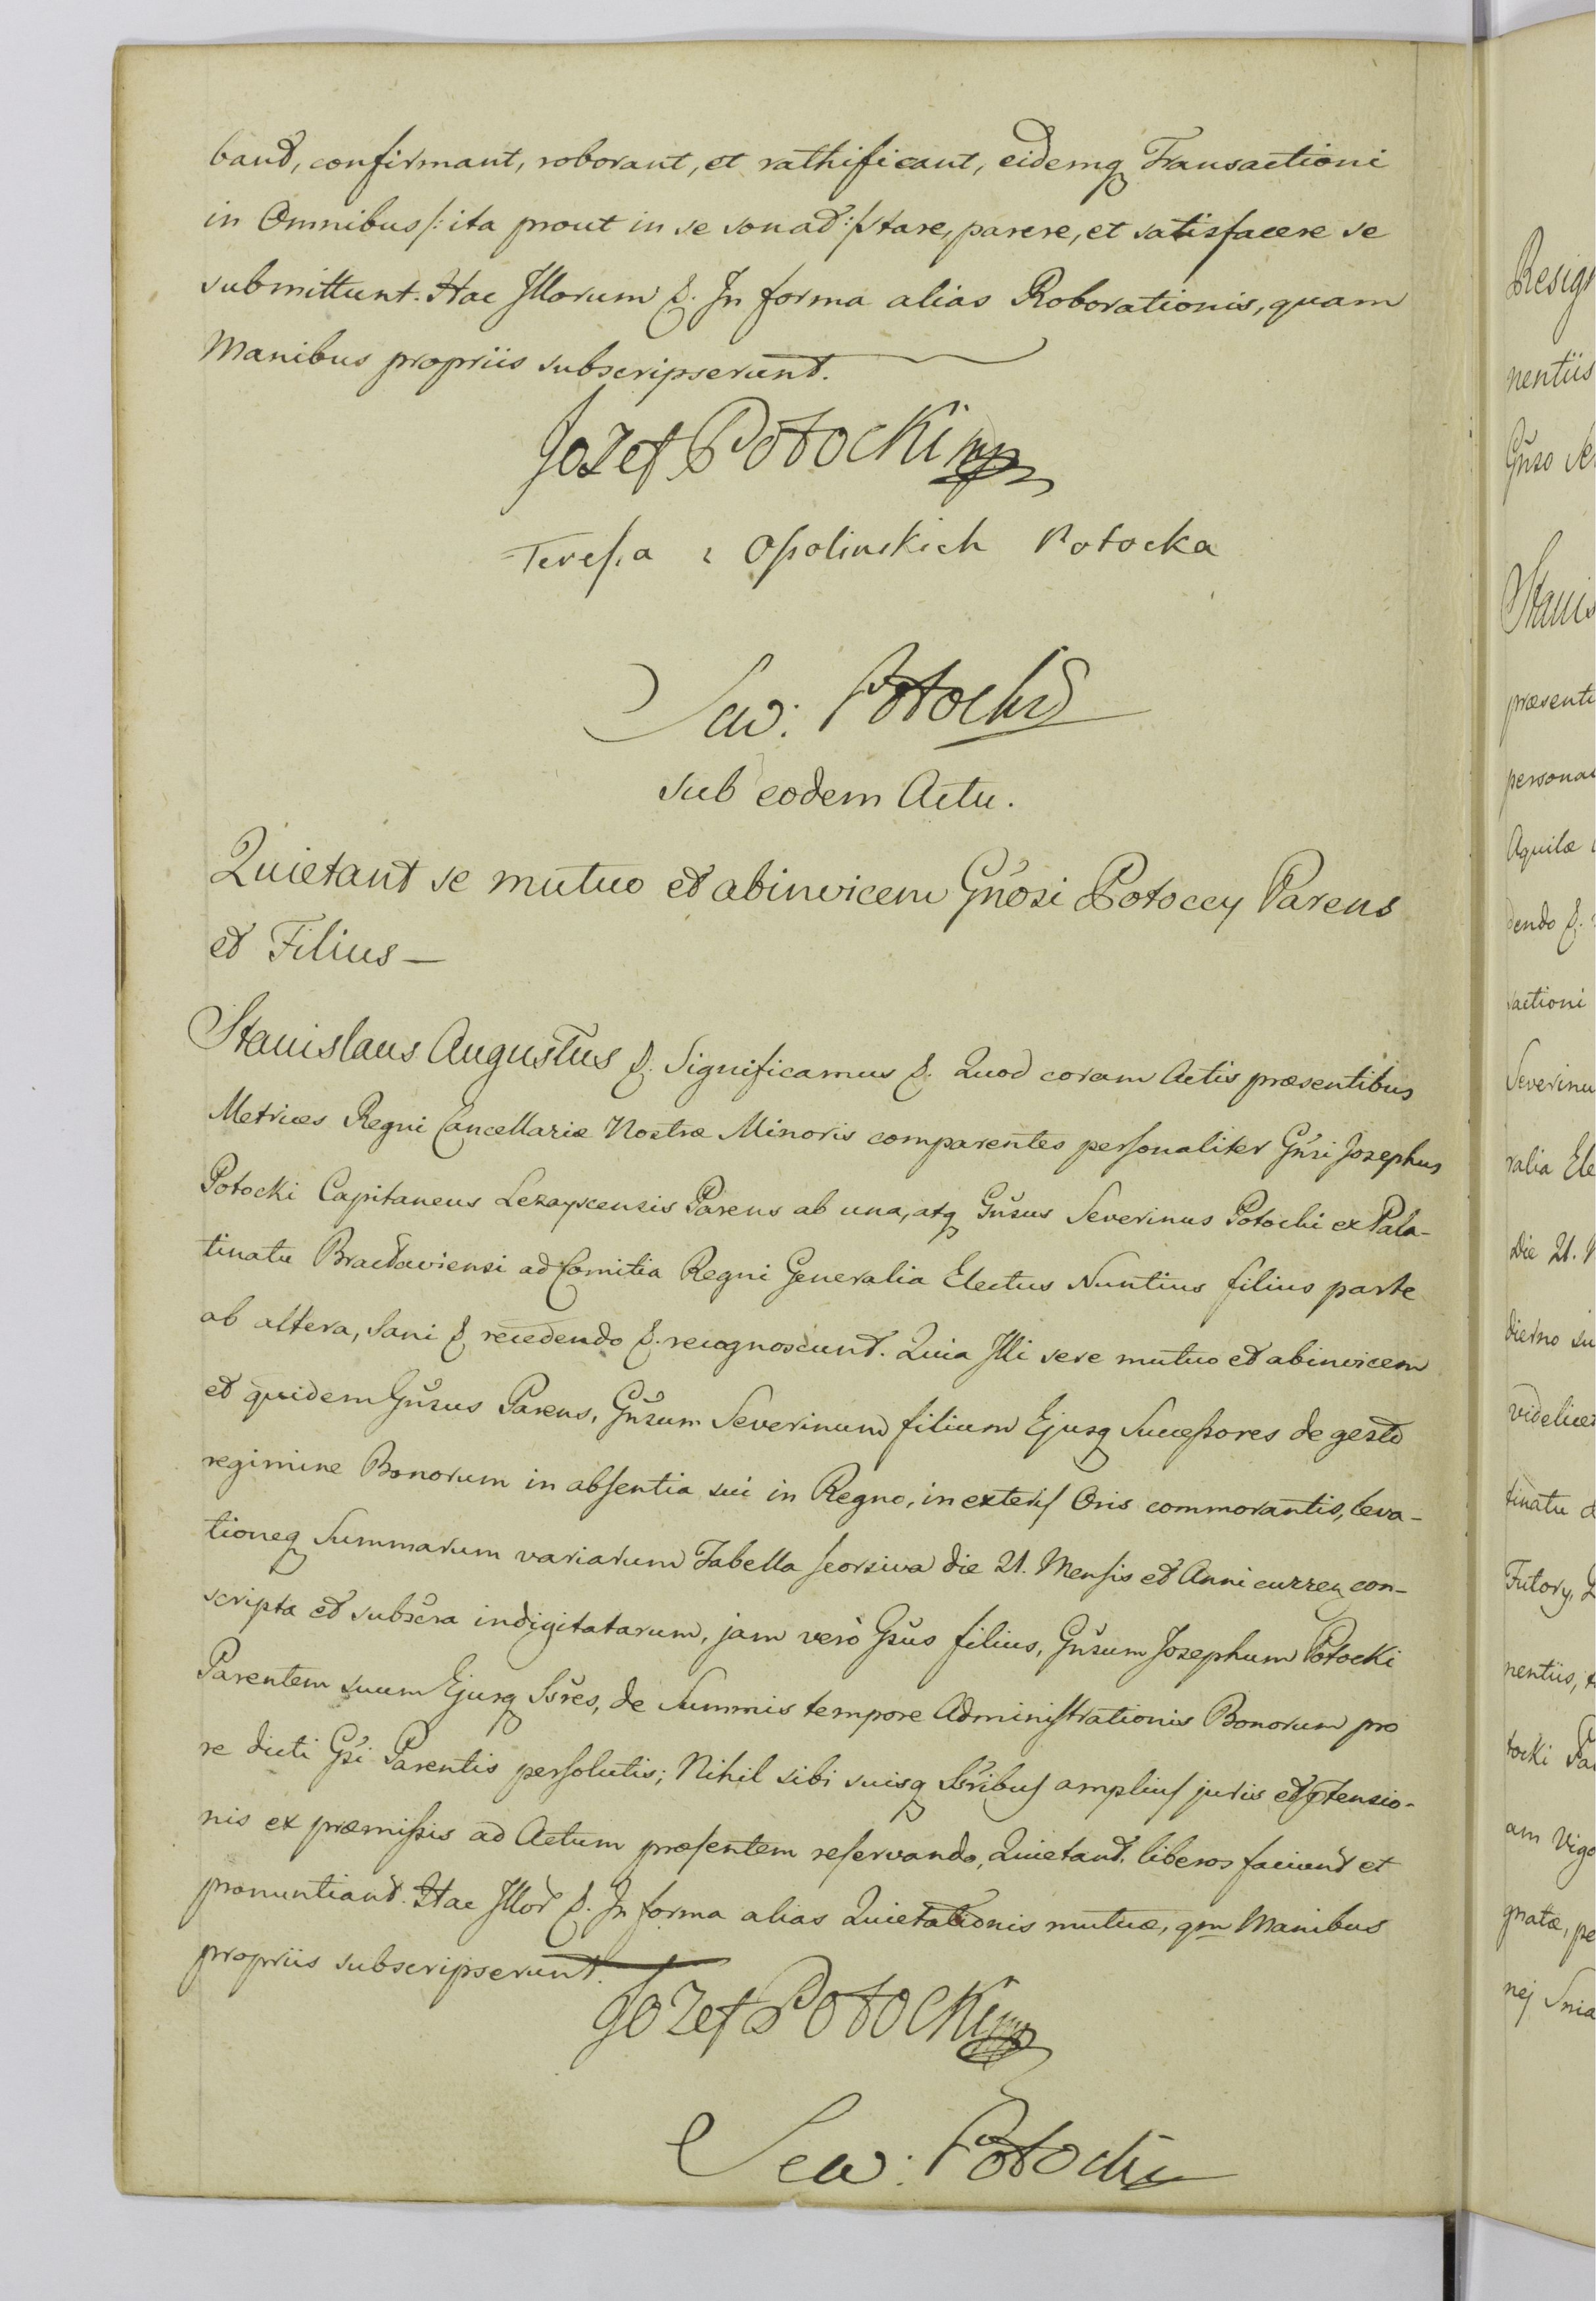 bant, confirmant, roborant, et rathificant, eidemq Transactioni
in Omnibus /: ita prout in se sonat :/ stare, parere, et satisfacere se
submittunt. Hac Illorum &. In forma alias Roborationis, quam
Manibus propriis subscripserunt.
Jozef Potocki mp
Teressa z Ossolinskich Potocka
Sew: Potocki
Sub eodem Actu.
Quietant se mutuo et abinvicem Gnosi Potoccy Parens
et Filius —
Stanislaus Augustus &. Significamus &. Quod coram Actis præsentibus
Metrices Regni Cancellariæ Nostræ Minoris comparentes personaliter Gnsi Josephus
Potocki Capitaneus Lezayscensis Parens ab una, atq Gnsus Severinus Potocki ex Pala-
tinatu Braclaviensi ad Comitia Regni Generalia Electus Nuntius filius parte
ab altera, Sani & recedendo &. recognoscunt. Quia Illi sese mutuo et abinvicem
et quidem Gnsus Parens, Gnsum Severinum filium Ejusq Successores de gesto
regimine Bonorum in absentia sui in Regno, in exteris Oris commorantis, leva-
tioneq Summarum variarum Tabella seorsiva die 21. Mensis et Anni curren con-
scripta et subscra indigitatarum, jam verò Gsus filius, Gnsum Josephum Potocki
Parentem suum Ejusq Ssres, de Summis tempore Administrationis Bonorum pro
re dicti Gsi Parentis persolutis; Nihil sibi suisq Ssribus amplius juris et ptensio-
nis ex præmissis ad Actum præsentem reservando, Quietant, liberos faciunt et
pronuntiant. Hac Illor &. In forma alias Quietationis mutuæ, qm Manibus
propriis subscripserunt.
Jozef Potocki mp
Sew: Potocki
Resig
nentiis
Gnso Se
Stanis
præsenti
persona
Aquilæ
dendo &.
sactioni
Severinu
ralia Ele
die 21.
dierno su
videlicet
tinatu
Futory,
nentiis,
tocki Pa
am Vigo
gnatæ, pe
nej Snia